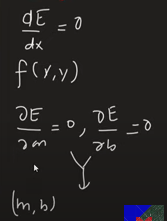 dE/dx = 0
f(x,y)
∂E/∂m = 0, ∂E/∂b = 0
(m, b)